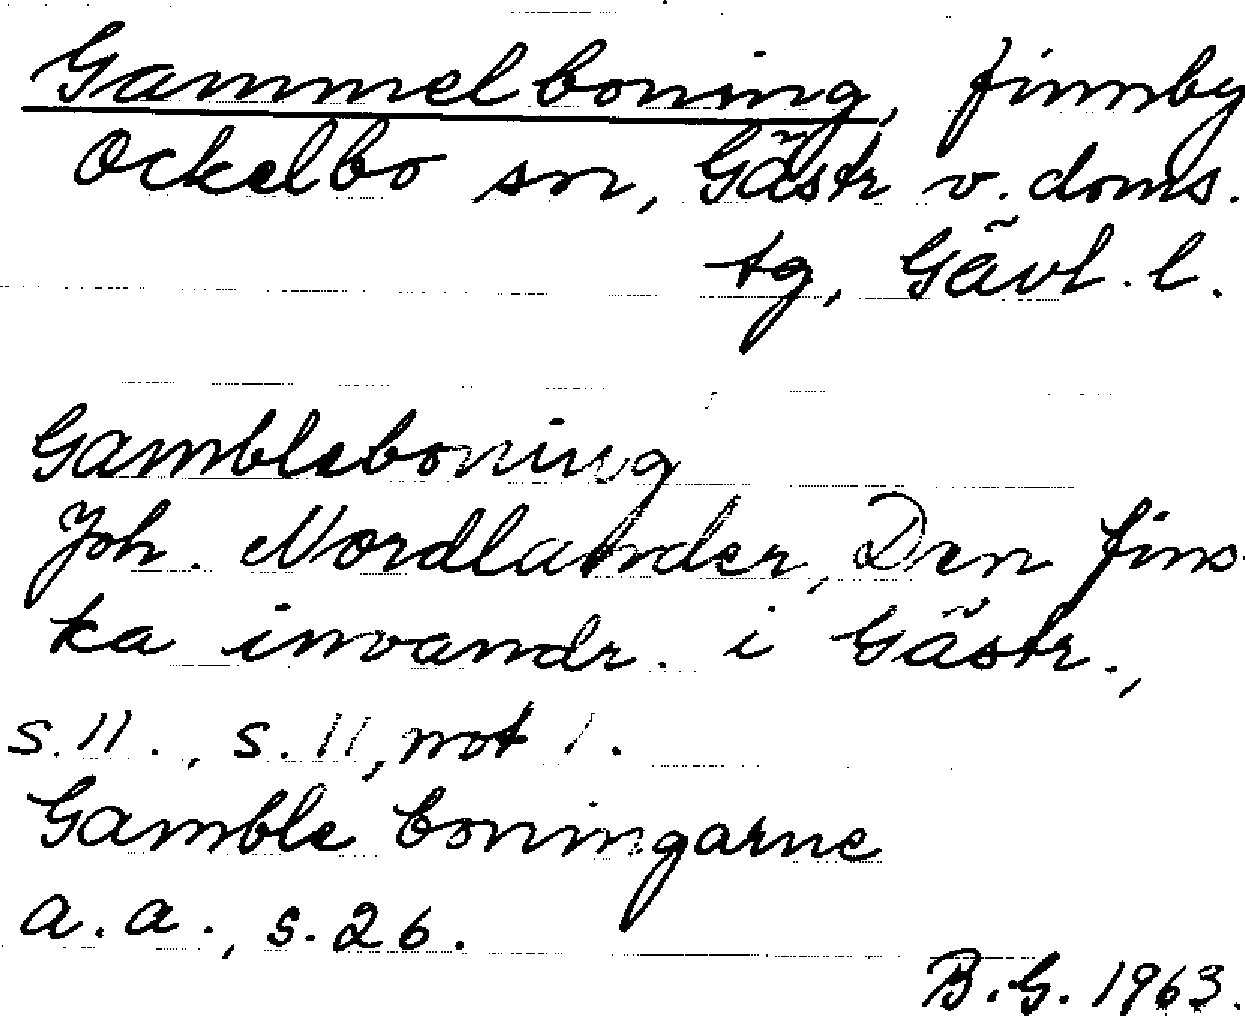 Gammelboning, finnby
Ockelbo sn, Gästr v. doms.
tg, Gävl. l.
Gambleboning
Joh. Nordlander, Den fins-
ka invandr. i Gästr.,
s. 11., s. 11, not 1.
Gamble boningarne
a. a., s. 26.
B. G. 1963.